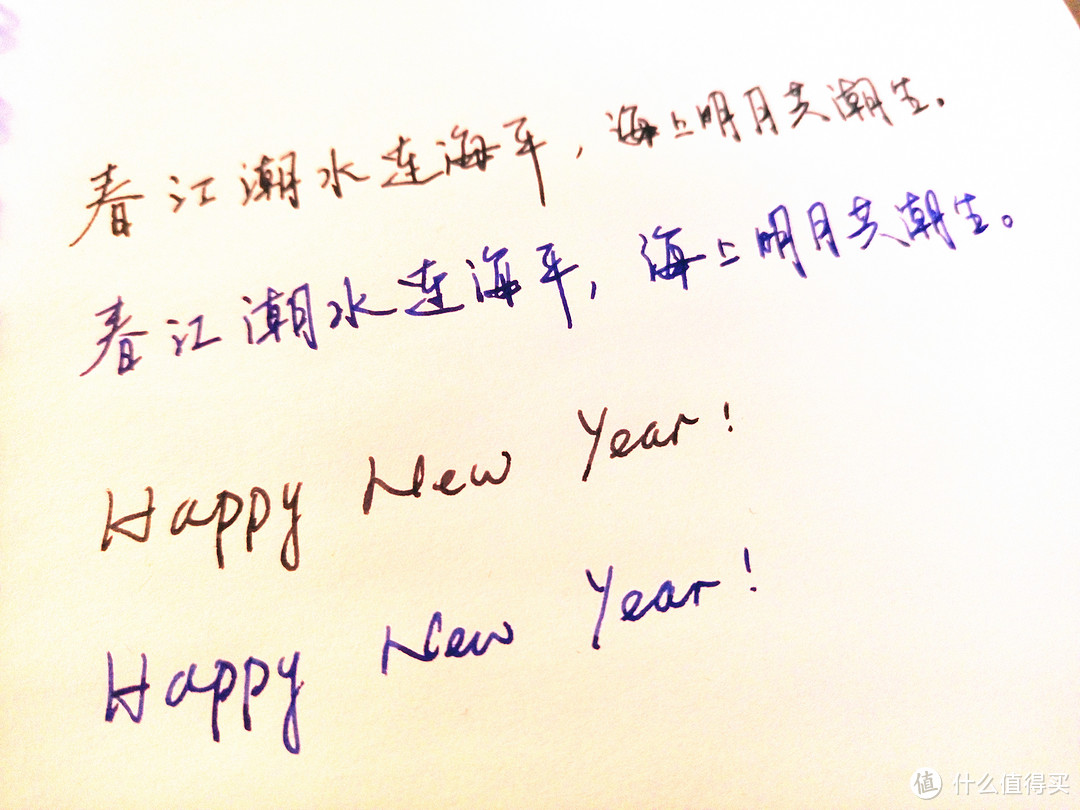 春江潮水连海平，海上明月共潮生。
春江潮水连海平，海上明月共潮生。
Happy New Year!
Happy New Year!
值 什么值得买